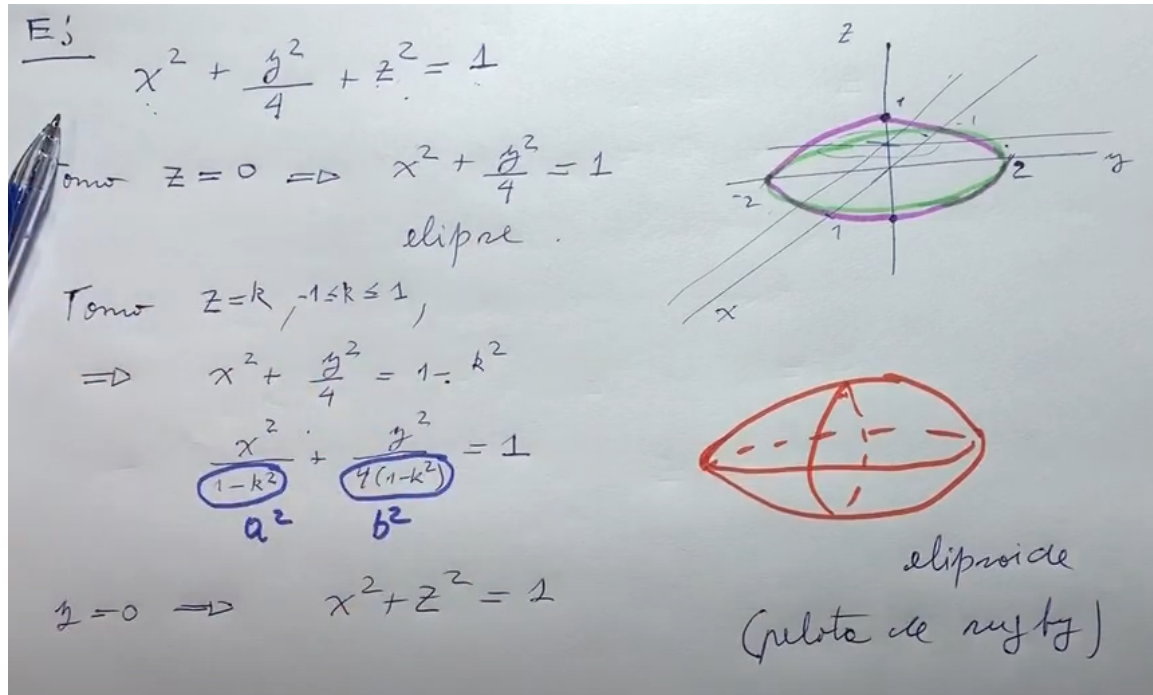 Ej
x² + y²/4 + z² = 1
Tomo z = 0 ⇒ x² + y²/4 = 1
elipse.
Tomo z = k, -1 ≤ k ≤ 1,
⇒ x² + y²/4 = 1 - k²
x²/(1-k²) + y²/(4(1-k²)) = 1
a² b²
y = 0 ⇒ x² + z² = 1
z
1
-1
y
-2
2
1
x
elipsoide
(pelota de rugby)